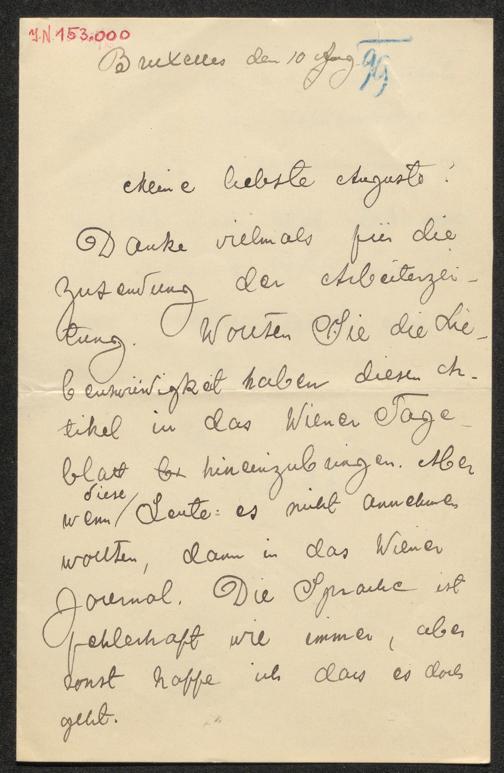 J.N. 153.000
Bruxelles den 10 Aug 99
Meine liebste Auguste!
Danke vielmals für die
zusendung der Arbeiterzei-
tung. Wollten Sie die Lie-
benswürdigkeit haben diesen Ar-
tikel in das Wiener Tage-
blatt hineinzubringen. Aber
diese
wenn / Leute es nicht annehmen
wollten, dann in das Wiener
Journal. Die Sprache ist
fehlerhaft wie immer, aber
sonst hoffe ich dass es doch
geht.